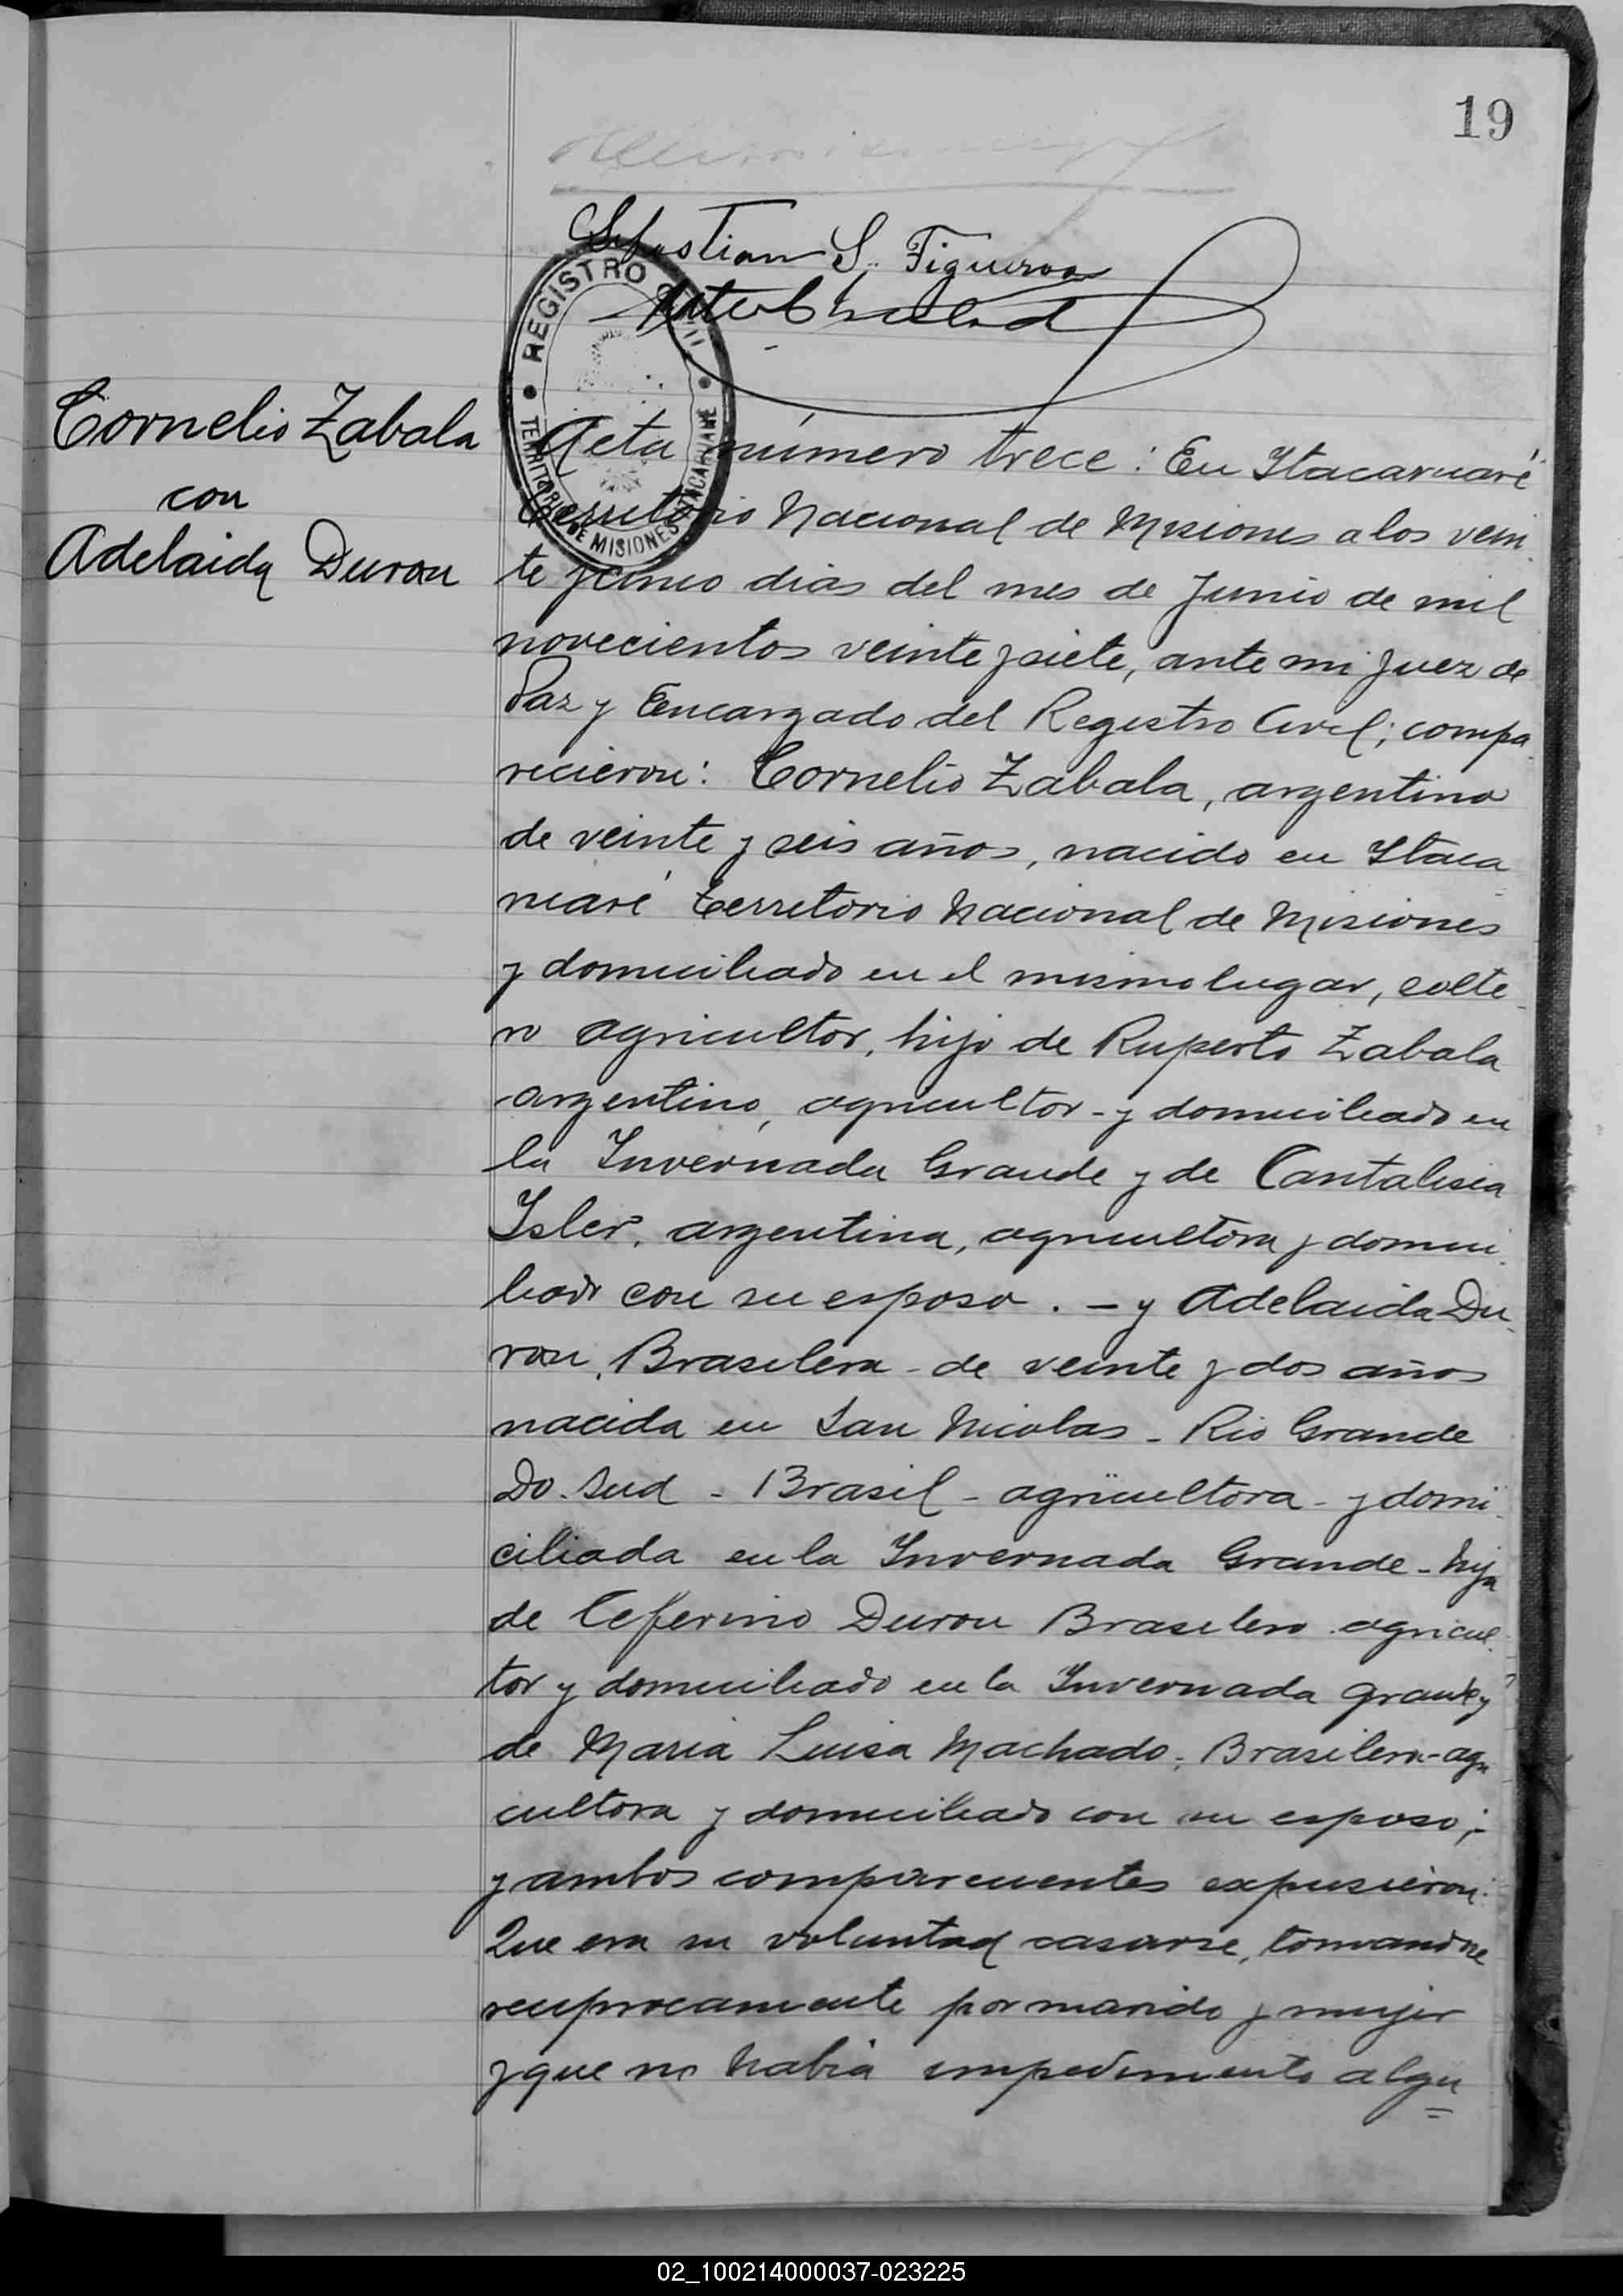 19
Sebastian S. Figueroa
REGISTRO CIVIL
TERRITORIO DE MISIONES ITACARUARÉ
Cornelio Zabala
con
Adelaida Duron
Acta número trece: En Itacaruaré
Territorio Nacional de Misiones a los vein
te y cinco dias del mes de Junio de mil
novecientos veinte y siete, ante mi Juez de
Paz y Encargado del Registro Civil; compa
recieron: Cornelio Zabala, argentino
de veinte y seis años, nacido en Itaca
ruaré Territorio Nacional de Misiones
y domiciliado en el mismo lugar, solte
ro agricultor, hijo de Ruperto Zabala
argentino, agricultor - y domiciliado en
la Invernada Grande y de Cantalisia
Isler, argentina, agricultora y domici
liado con su esposo. - y Adelaida Du
ron, Brasilera - de veinte y dos años
nacida en San Nicolas - Rio Grande
Do Sud - Brasil - agricultora - y domi
ciliada en la Invernada Grande - hija
de Ceferino Duron Brasilero agricul
tor y domiciliado en la Invernada Grande y
de Maria Luisa Machado, Brasilera - agri
cultora y domiciliado con su esposo;-
y ambos comparecientes expusieron:
Que era su voluntad casarse, tomandose
reciprocamente por marido y mujer
y que no habia impedimento algu
02_100214000037-023225